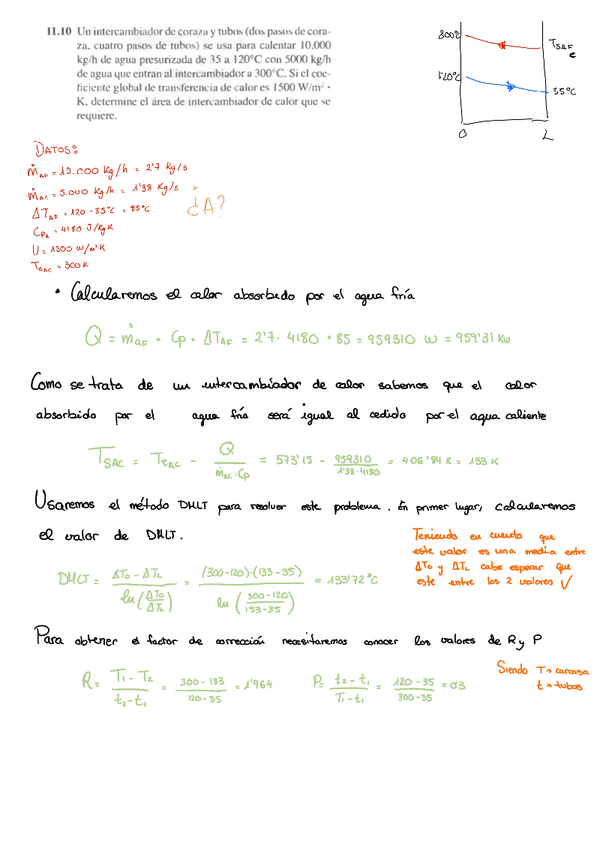 11.10 Un intercambiador de coraza y tubos (dos pasos de cora-
za, cuatro pasos de tubos) se usa para calentar 10,000
kg/h de agua presurizada de 35 a 120°C con 5000 kg/h
de agua que entran al intercambiador a 300°C. Si el coe-
ficiente global de transferencia de calor es 1500 W/m² ·
K, determine el área de intercambiador de calor que se
requiere.
300º
TSAC
120°C
35°C
0 L
DATOS:
ṁAF = 10.000 Kg/h = 2'7 Kg/s
ṁAC = 5.000 Kg/h = 1'38 Kg/s
ΔTAF = 120 - 35°C = 85°C
CPA = 4180 J/KgK
U = 1500 W/m²K
TeAC = 300K
¿A?
• Calcularemos el calor absorbido por el agua fría
Q = ṁAF · Cp · ΔTAF = 2'7 · 4180 · 85 = 959310 W = 959'31 KW
Como se trata de un intercambiador de calor sabemos que el calor
absorbido por el agua fría será igual al cedido por el agua caliente
TSAC = TeAC - Q / ṁAC · Cp = 573'15 - 959310 / 1'38 · 4180 = 406'84 K = 133 K
Usaremos el método DMLT para resolver este problema. En primer lugar, calcularemos
el valor de DMLT.
Teniendo en cuenta que
este valor es una media entre
ΔTo y ΔTL cabe esperar que
este entre los 2 valores ✓
DMLT = ΔTo - ΔTL / ln(ΔTo / ΔTL) = (300-120)-(133-35) / ln(300-120 / 133-35) = 133'72 °C
Para obtener el factor de corrección necesitaremos conocer los valores de R y P
Siendo T = carcasa
t = tubos
R = T1 - T2 / t2 - t1 = 300 - 133 / 120 - 35 = 1'964 P = t2 - t1 / T1 - t1 = 120 - 35 / 300 - 35 = 0'3